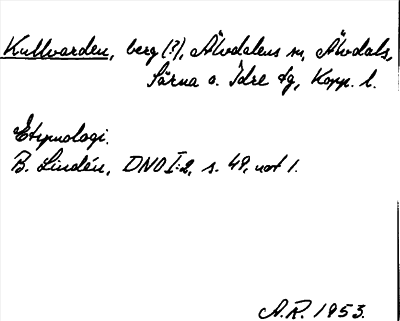 Kullvarden, berg (?), Älvdalens sn, Älvdals,
Särna o. Idre tg, Kopp. l.
Etymologi.
B. Lindén, DNO I:2, s. 49, not 1.
A.R. 1953.